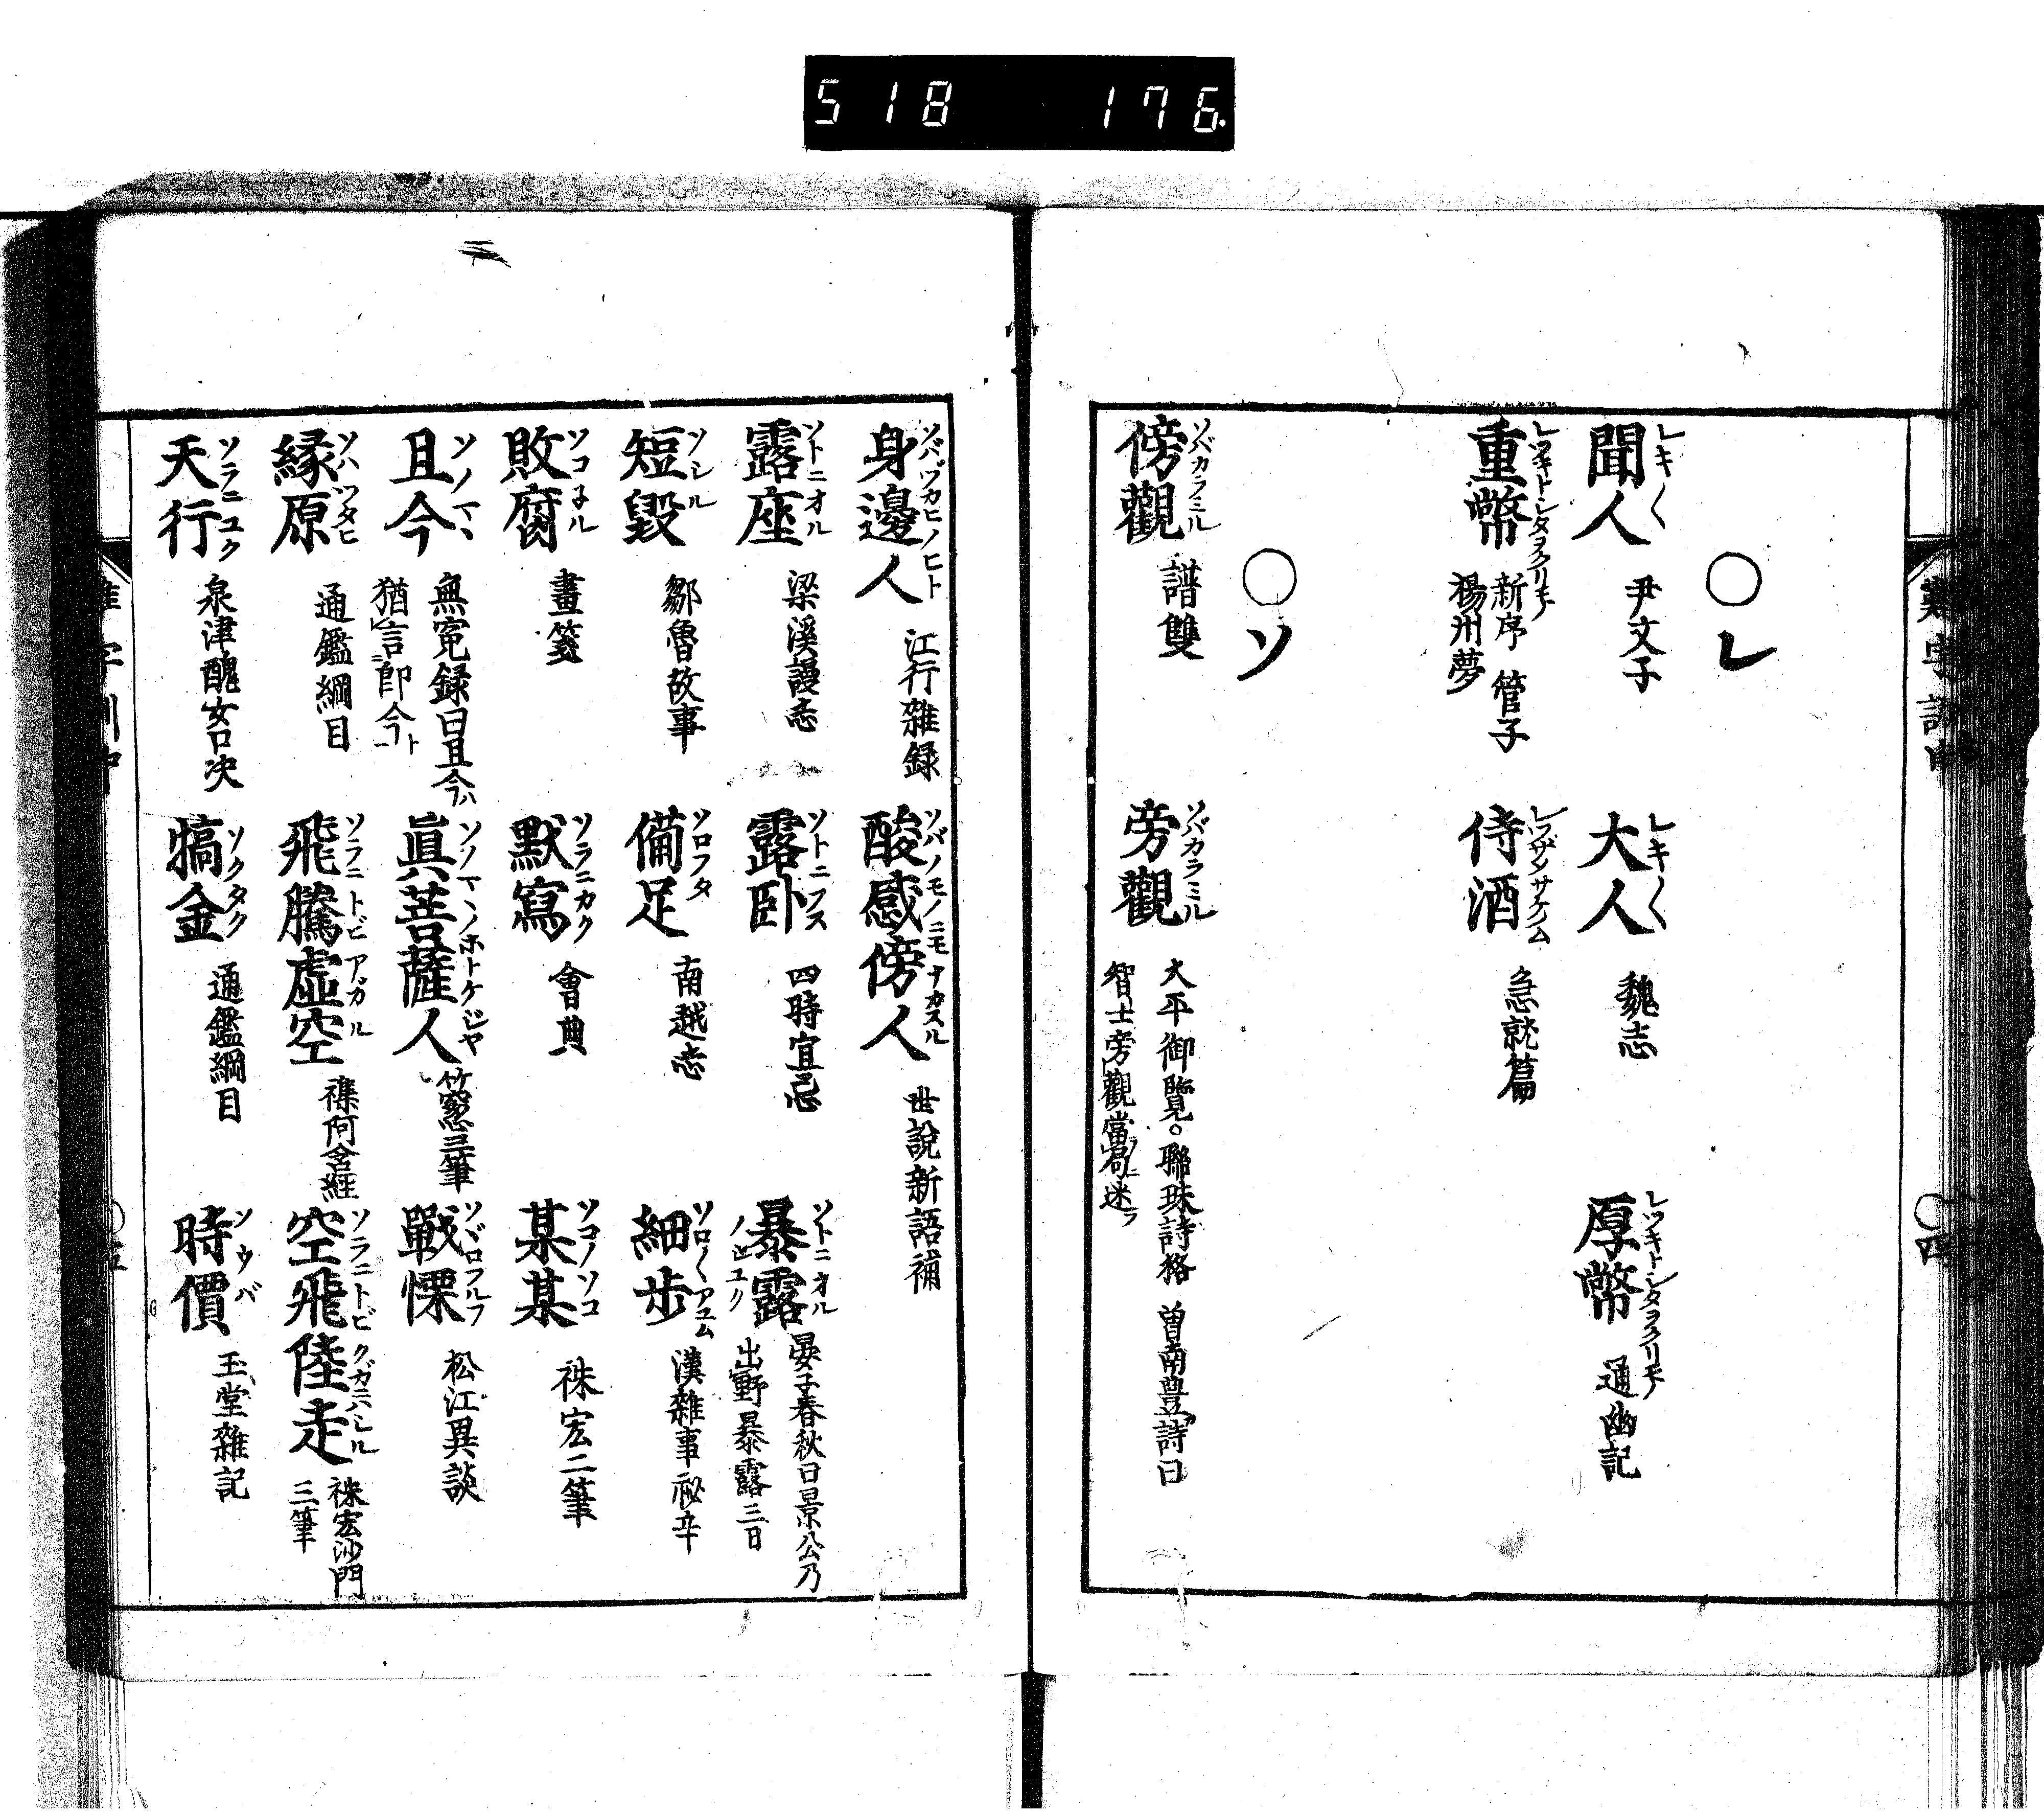 518 176.
○レ
聞人 レキ〱 尹文子
大人 レキ〱 魏志
厚幣 レツキトシタヲクリモノ 通幽記
重幣 レツキトシタヲクリモノ 新序 管子 楊州夢
侍酒 レウザノサケノム 急就篇
○ソ
傍觀 ソバカラミル 譜雙
旁觀 ソバカラミル 大平御覽。聯珠詩格 曽南豊詩曰
智士旁觀當局迷フ
身邊人 ソバヅカヒノヒト 江行雜録
酸感傍人 ソバノモノニモナカスル 世説新語補
露座 ソトニオル 梁溪謾志
露卧 ソトニフス 四時宜忌
暴露 ソトニオル 晏子春秋曰景公乃
出野暴露三日
短毀 ソシル 鄒魯故事
備足 ソロフタ 南越志
細歩 ソロ〱アユム 漢雜事祕辛
敗腐 ソコ子ル 畫箋
默寫 ソラニカク 會典
某某 ソコノソコ 祩宏二筆
且今 ソノマヽ 無寃録曰且今ハ
猶言即今ト
眞菩薩人 ソノマヽノホトケジヤ 窓三筆
戰慄 ソヾロフルフ 松江異談
縁原 ソハツタヒ 通鑑綱目
飛騰虚空 ソラニトビアガル 襍阿含經
空飛陸走 ソラニトビクガニハシル 祩宏沙門
三筆
天行 ソラニユク 泉津醜女口決
犒金 ソクタク 通鑑綱目
時價 ソウバ 玉堂雜記